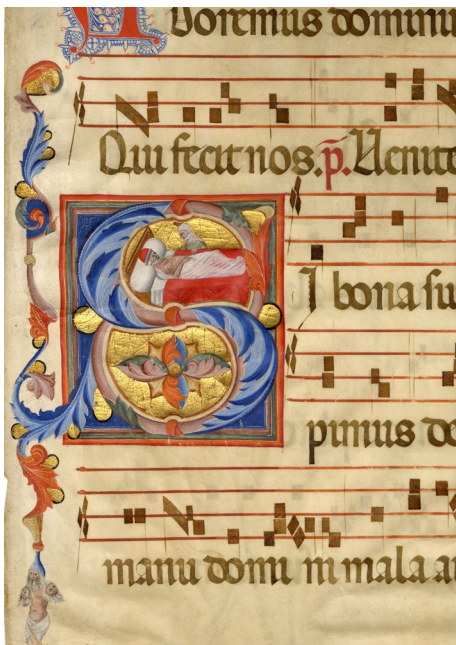 Adoremus dominu
Qui fecit nos. p. Uenite
SI bona su
pimus de
manu domi ni mala au